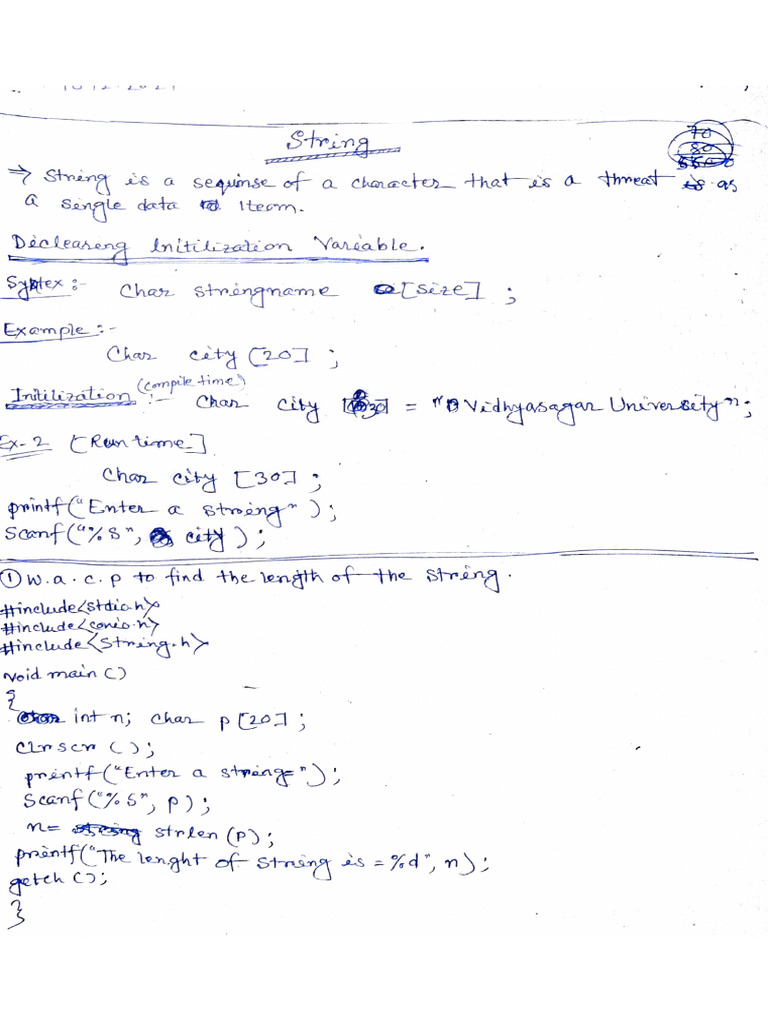 String
70
80
⇒ String is a sequinse of a character that is a threat as
a single data Iteom.
Decleareng Initilization Variable.
Syntex :- Char stringname [size] ;
Example :-
Char city [20] ;
Initilization (compile time) :- Char city [30] = "Vidhyasagar University";
Ex-2 [Run time]
Char city [30] ;
printf("Enter a string");
Scanf("%S", city);
① W.a.c.p to find the length of the string.
#include<stdio.h>
#include<conio.h>
#include<String.h>
void main ()
{
int n; char p[20];
Clrscr ();
printf("Enter a string=");
Scanf("%S", p);
n= strlen (p);
printf("The lenght of string is =%d", n);
getch ();
}